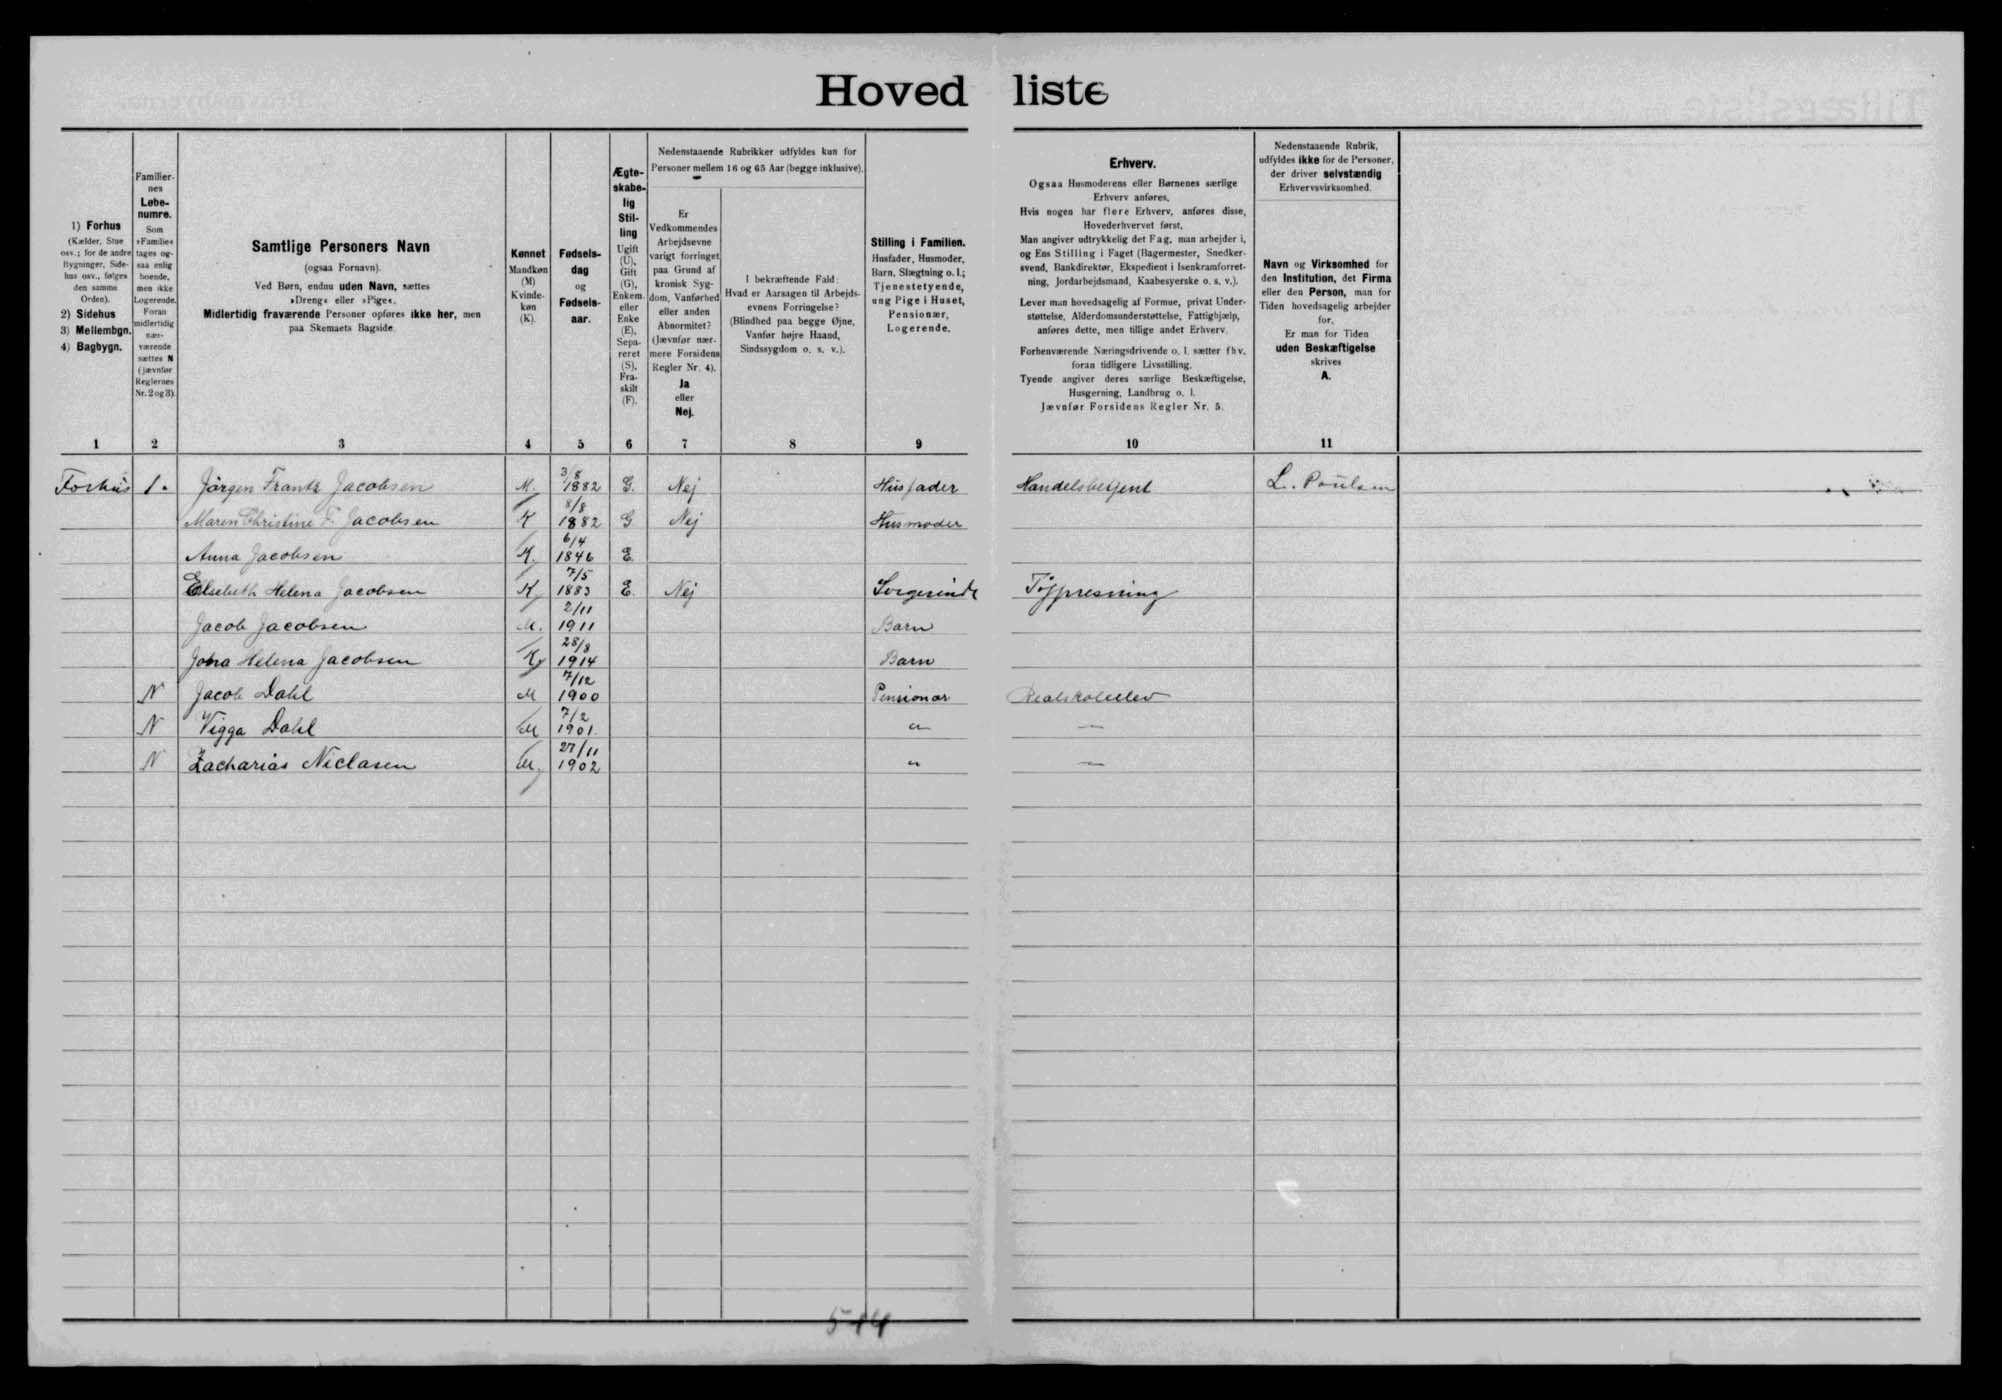 Hovedliste
1) Forhus
(Kælder, Stue
osv.; for de andre
Bygninger, Side-
hus osv., følges
den samme
Orden).
2) Sidehus
3) Mellembgn.
4) Bagbygn.
Familier-
nes
Løbe-
numre.
Som
»Familie«
tages og-
saa enlig
boende,
men ikke
Logerende.
Foran
midlertidig
nær-
værende
sættes N
(jævnfør
Reglernes
Nr. 2 og 3).
Samtlige Personers Navn
(ogsaa Fornavn).
Ved Børn, endnu uden Navn, sættes
»Dreng« eller »Pige«.
Midlertidig fraværende Personer opføres ikke her, men
paa Skemaets Bagside.
Kønnet
Mandkøn
(M)
Kvinde-
køn
(K).
Fødsels-
dag
og
Fødsels-
aar.
Ægte-
skabe-
lig
Stil-
ling
Ugift
(U),
Gift
(G),
Enkem.
eller
Enke
(E),
Sepa-
reret
(S),
Fra-
skilt
(F).
Nedenstaaende Rubrikker udfyldes kun for
Personer mellem 16 og 65 Aar (begge inklusive).
Er
Vedkommendes
Arbejdsevne
varigt forringet
paa Grund af
kronisk Syg-
dom, Vanførhed
eller anden
Abnormitet?
(Jævnfør nær-
mere Forsidens
Regler Nr. 4).
Ja
eller
Nej.
I bekræftende Fald:
Hvad er Aarsagen til Arbejds-
evnens Forringelse?
(Blindhed paa begge Øjne,
Vanfør højre Haand,
Sindssygdom o. s. v.).
Stilling i Familien.
Husfader, Husmoder,
Barn, Slægtning o. l.;
Tjenestetyende,
ung Pige i Huset,
Pensionær,
Logerende.
Erhverv.
Ogsaa Husmoderens eller Børnenes særlige
Erhverv anføres.
Hvis nogen har flere Erhverv, anføres disse,
Hovederhvervet først.
Man angiver udtrykkelig det Fag, man arbejder i,
og Ens Stilling i Faget (Bagermester, Snedker-
svend, Bankdirektør, Ekspedient i Isenkramforret-
ning, Jordarbejdsmand, Kaabesyerske o. s. v.).
Lever man hovedsagelig af Formue, privat Under-
støttelse, Alderdomsunderstøttelse, Fattighjælp,
anføres dette, men tillige andet Erhverv.
Forhenværende Næringsdrivende o. l. sætter fhv.
foran tidligere Livsstilling.
Tyende angiver deres særlige Beskæftigelse,
Husgerning, Landbrug o. l.
Jævnfør Forsidens Regler Nr. 5.
Nedenstaaende Rubrik,
udfyldes ikke for de Personer,
der driver selvstændig
Erhvervsvirksomhed.
Navn og Virksomhed for
den Institution, det Firma
eller den Person, man for
Tiden hovedsagelig arbejder
for.
Er man for Tiden
uden Beskæftigelse
skrives
A.
1 2 3 4 5 6 7 8 9 10 11
Forhus 1. Jørgen Frantz Jacobsen M. 3/8 1882 G. Nej Husfader Handelsbetjent L. Poulsen
Maren Christine F. Jacobsen K 8/8 1882 G Nej Husmoder
Anna Jacobsen K. 6/4 1846 E.
Elsebeth Helena Jacobsen K 7/5 1883 E. Nej Tøjpresning
Jacob Jacobsen M. 2/11 1911 Barn
Helena Jacobsen K 28/8 1914 Barn
N Jacob Dahl M 7/12 1900 Pensionær Realskoleelev
N Vigga Dahl M 7/2 1901. " —
N Zacharias Niclasen M. 27/11 1902 " —
514